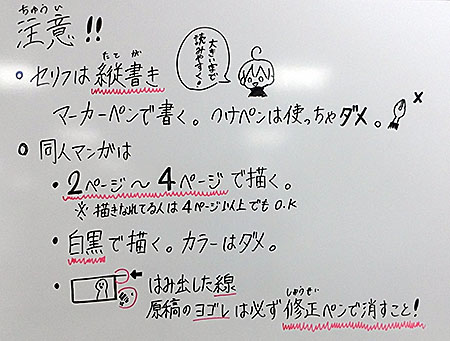 ちゅうい
注意!!
たてが
セリフは縦書き
大きい字で
読みやすく!
マーカーペンで書く。つけペンは使っちゃダメ。 ×
同人マンガは
・2ページ～4ページで描く。
※描きなれてる人は4ページ以上でもO.K
・白黒で描く。カラーはダメ。
・ はみ出した線
原稿のヨゴレは必ず修正ペンで消すこと!
しゅうせい